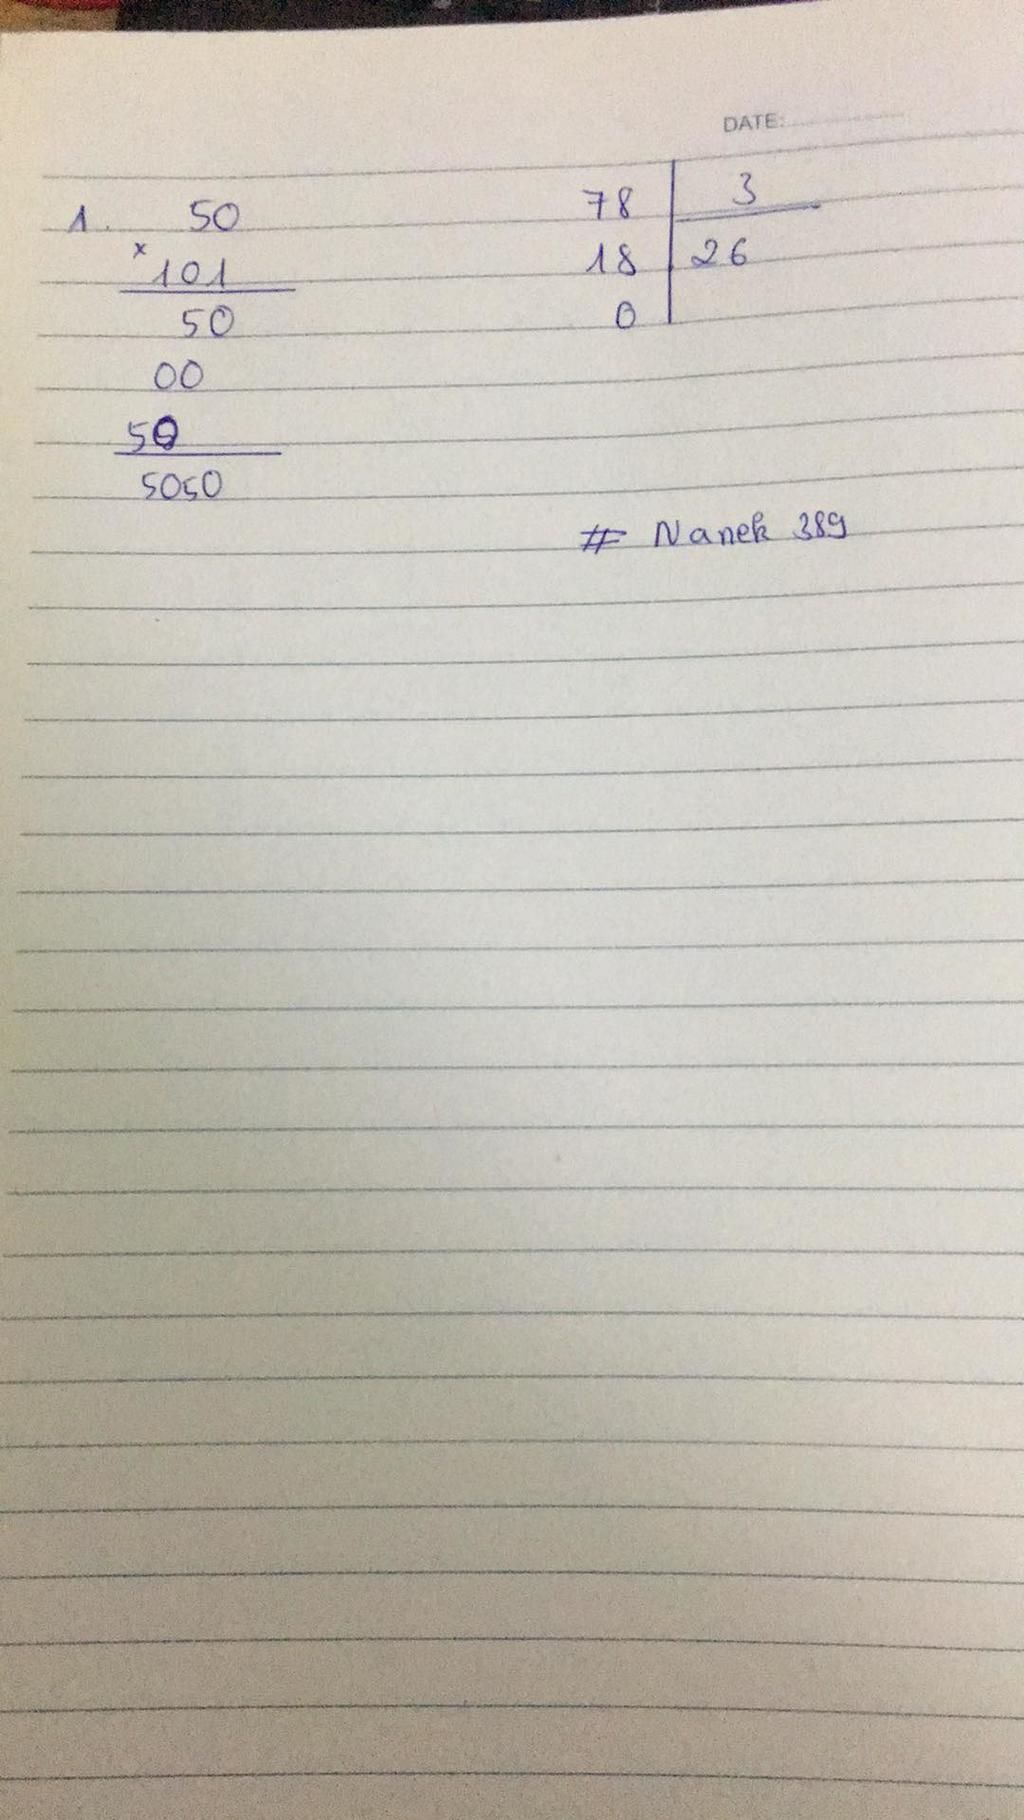 DATE:
1. 50
x
101
50
00
50
5050
78 3
18 26
0
# Nanek 389